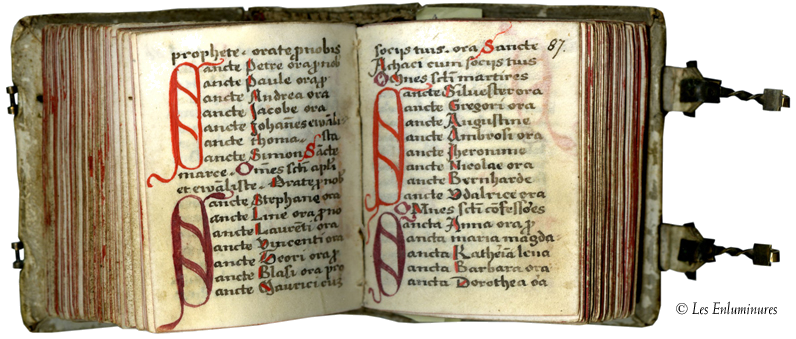 prophete. orate p nobis
Sancte Petre ora p nob
Sancte Paule ora p
Sancte Andrea ora
Sancte Jacobe ora
Sancte Johānes ewāli
Sancte Thoma
Sancte Simon Sācte
marce. Omēs scti apli
et ewāliste. Orate p nob
Sancte Stephane ora
Sancte Line ora p no
Sancte Laurēti ora
Sancte Vincenti ora
Sancte Geori ora p
Sancte Blasi ora pro
Sancte Maurici cu
socijs tuis. ora Sancte
87.
Achaci cum socijs tuis
Omnes scti martires
Sancte Silvester ora
Sancte Gregori ora
Sancte Augustine
Sancte Ambrosi ora
Sancte Iheronime
Sancte Nicolae ora
Sancte Bernharde
Sancte Vdalrice ora
Omnes scti cōfessōes
Sancta Anna ora p
Sancta maria magda
Sancta Katherina lena
Sancta Barbara ora
Sancta Dorothea oa
© Les Enluminures